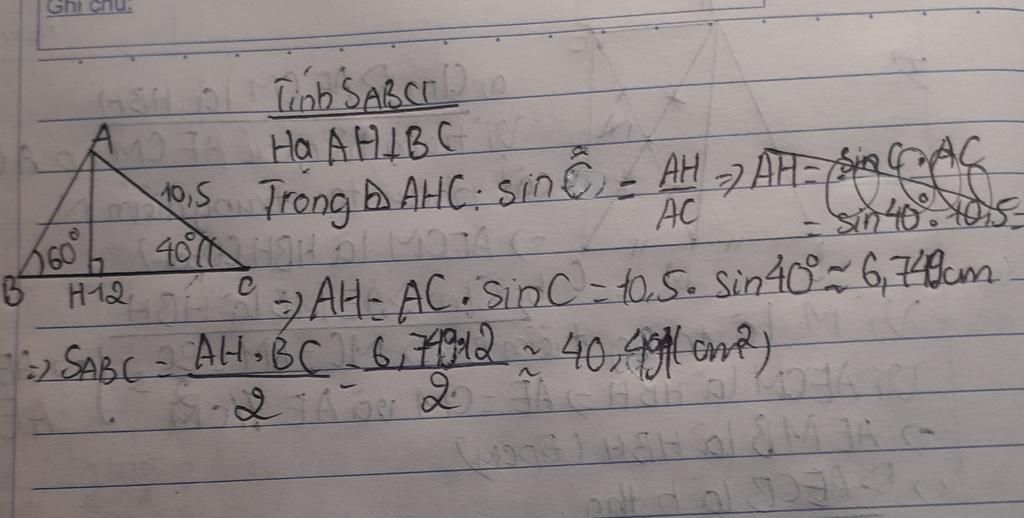 Ghi chú:
Tính SABC
Hạ AH⊥BC
A
10,5
60°
40°
B
H
12
C
Trong △ AHC: sin Ĉ = AH/AC => AH = sin C . AC
= sin40° . 10,5 =
=> AH = AC . sin C = 10,5 . sin 40° ≈ 6,749cm
=> SABC = AH . BC/2 = 6,749.12/2 ≈ 40,494(cm²)